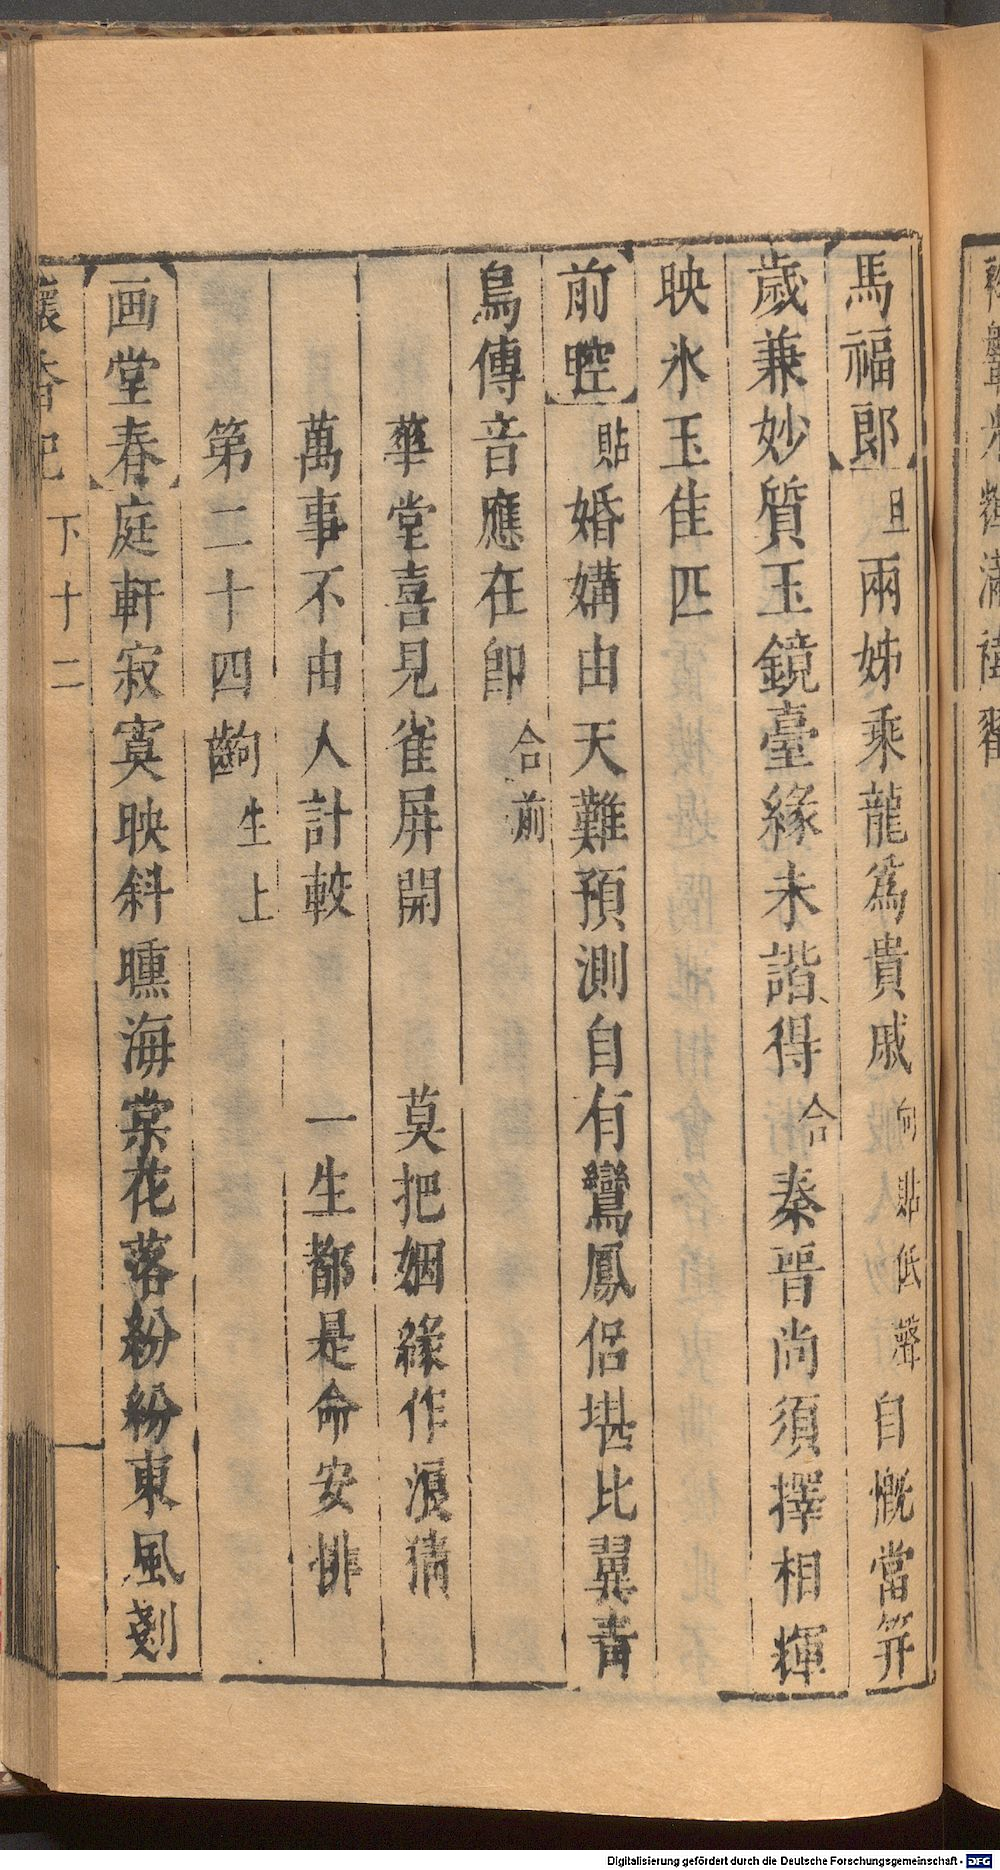 馬福郎 旦 兩姊乘龍爲貴戚 向貼低聲 自慨當笄
歲兼妙質玉鏡臺緣未諧得 合 秦晉尚須擇相輝
映氷玉隹匹
前腔 貼 婚媾由天難預測自有鸞鳳侶堪比翼青
鳥傳音應在卽 合前
華堂喜見雀屏開 莫把姻緣作浪猜
萬事不由人計較 一生都是命安排
第二十四齣 生上
画堂春 庭軒寂寞映斜曛海棠花落紛紛東風剗
懷香記 下十二
Digitalisierung gefördert durch die Deutsche Forschungsgemeinschaft - DFG